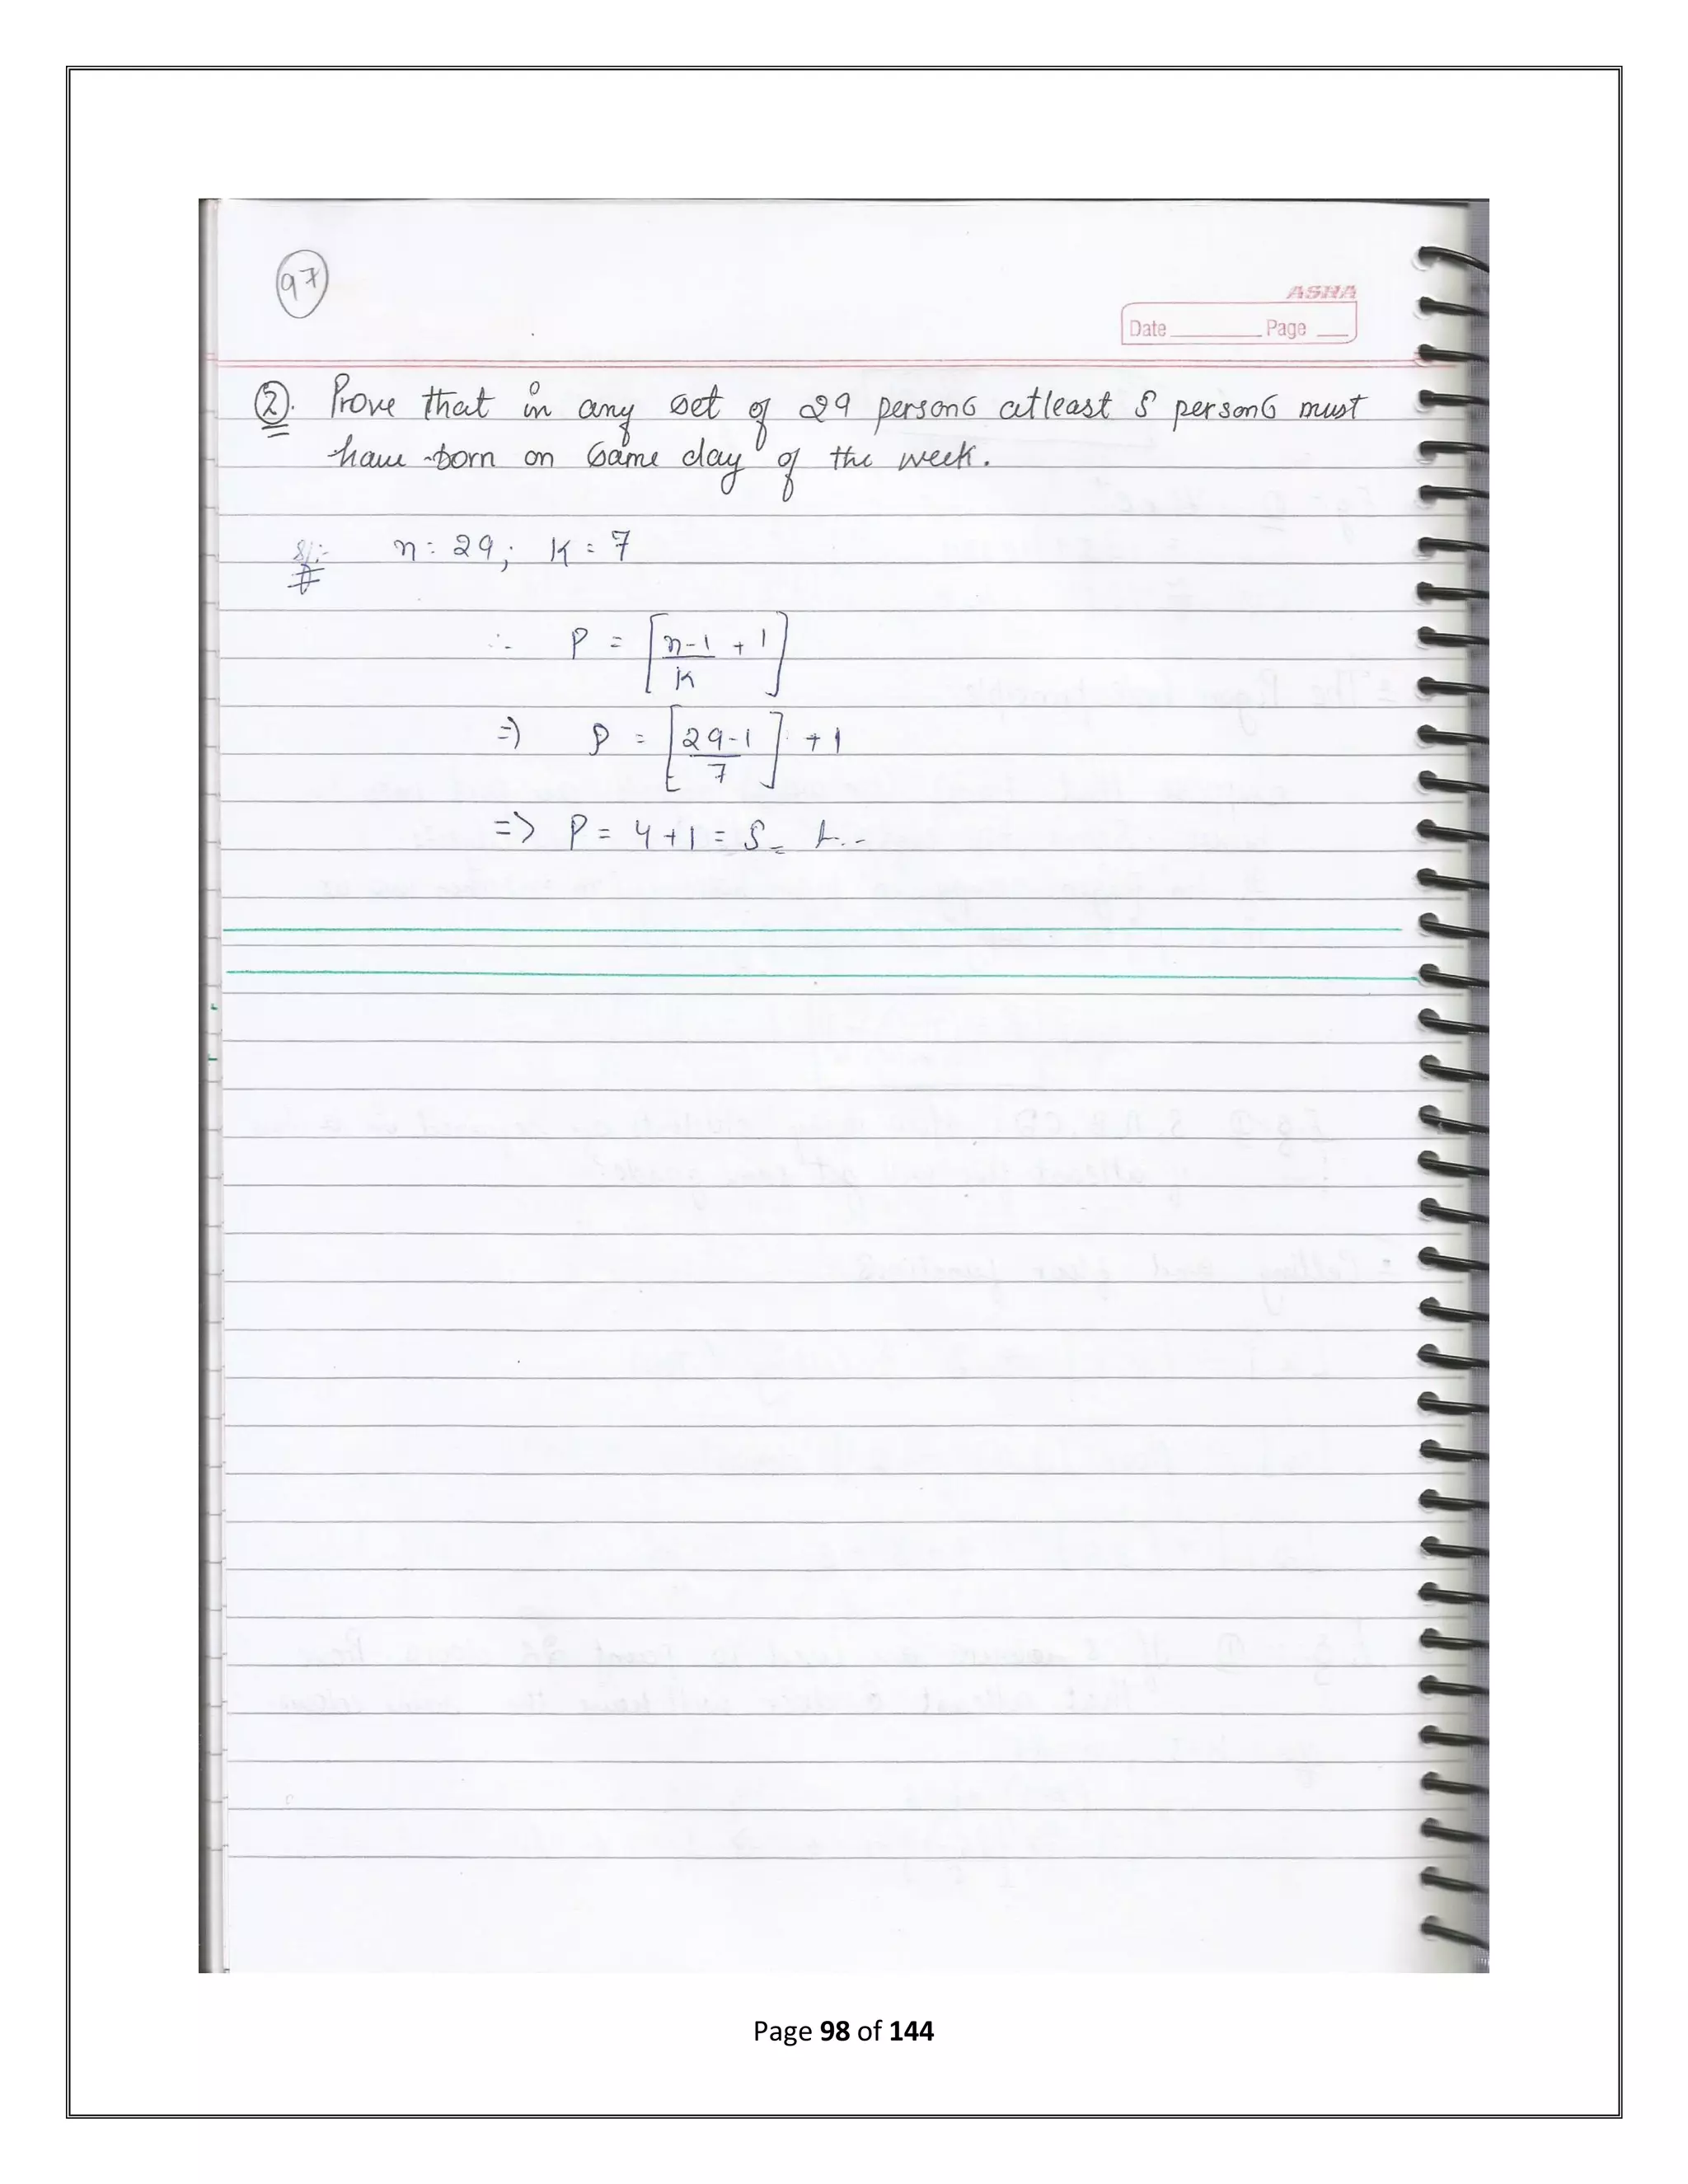 97
ASHA
Date Page
②. Prove that in any set of 29 persons atleast 5 persons must
have born on same day of the week.
Sol:- n = 29; K = 7
∴ P = [n-1/K + 1]
=> P = [29-1/7] + 1
=> P = 4+1 = 5
Page 98 of 144